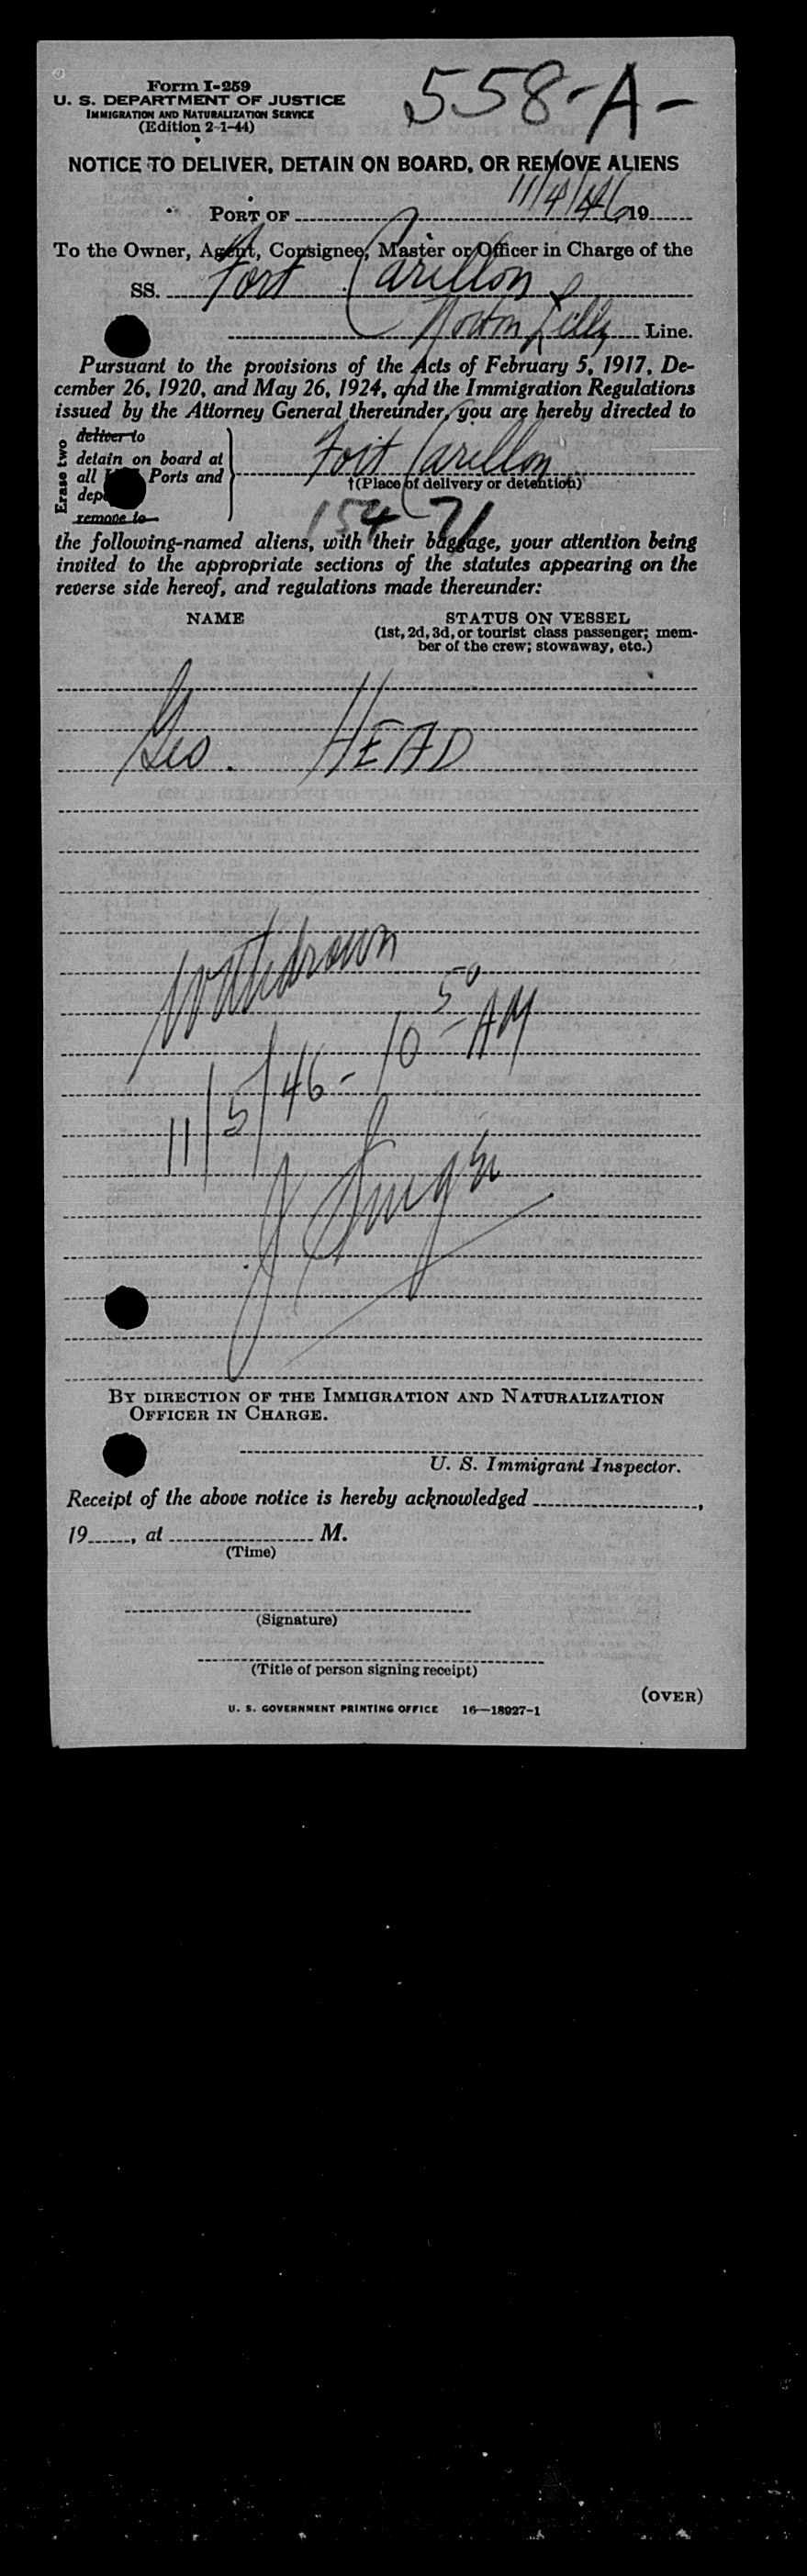 Form I-259
558-A-
U. S. DEPARTMENT OF JUSTICE
IMMIGRATION AND NATURALIZATION SERVICE
(Edition 2-1-44)
NOTICE TO DELIVER, DETAIN ON BOARD, OR REMOVE ALIENS
PORT OF 11/4/46 19
To the Owner, Agent, Consignee, Master or Officer in Charge of the
SS. Fort Carillon
Norton Lilly Line.
Pursuant to the provisions of the Acts of February 5, 1917, De-
cember 26, 1920, and May 26, 1924, and the Immigration Regulations
issued by the Attorney General thereunder, you are hereby directed to
Erase two
deliver to
detain on board at
all Ports and
remove to
Fort Carillon
†(Place of delivery or detention)
154 71
the following-named aliens, with their baggage, your attention being
invited to the appropriate sections of the statutes appearing on the
reverse side hereof, and regulations made thereunder:
NAME STATUS ON VESSEL
(1st, 2d, 3d, or tourist class passenger; mem-
ber of the crew; stowaway, etc.)
Geo. HEAD
Withdrawn
11/5/46 - 10 50 AM
J
BY DIRECTION OF THE IMMIGRATION AND NATURALIZATION
OFFICER IN CHARGE.
U. S. Immigrant Inspector.
Receipt of the above notice is hereby acknowledged ,
19 , at M.
(Time)
(Signature)
(Title of person signing receipt)
(OVER)
U. S. GOVERNMENT PRINTING OFFICE 16—18927-1